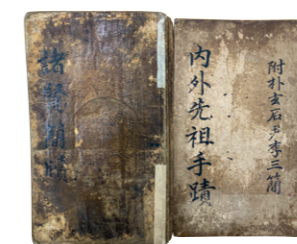 諸賢簡蹟
內外先祖手蹟
附朴玄石尹李三簡